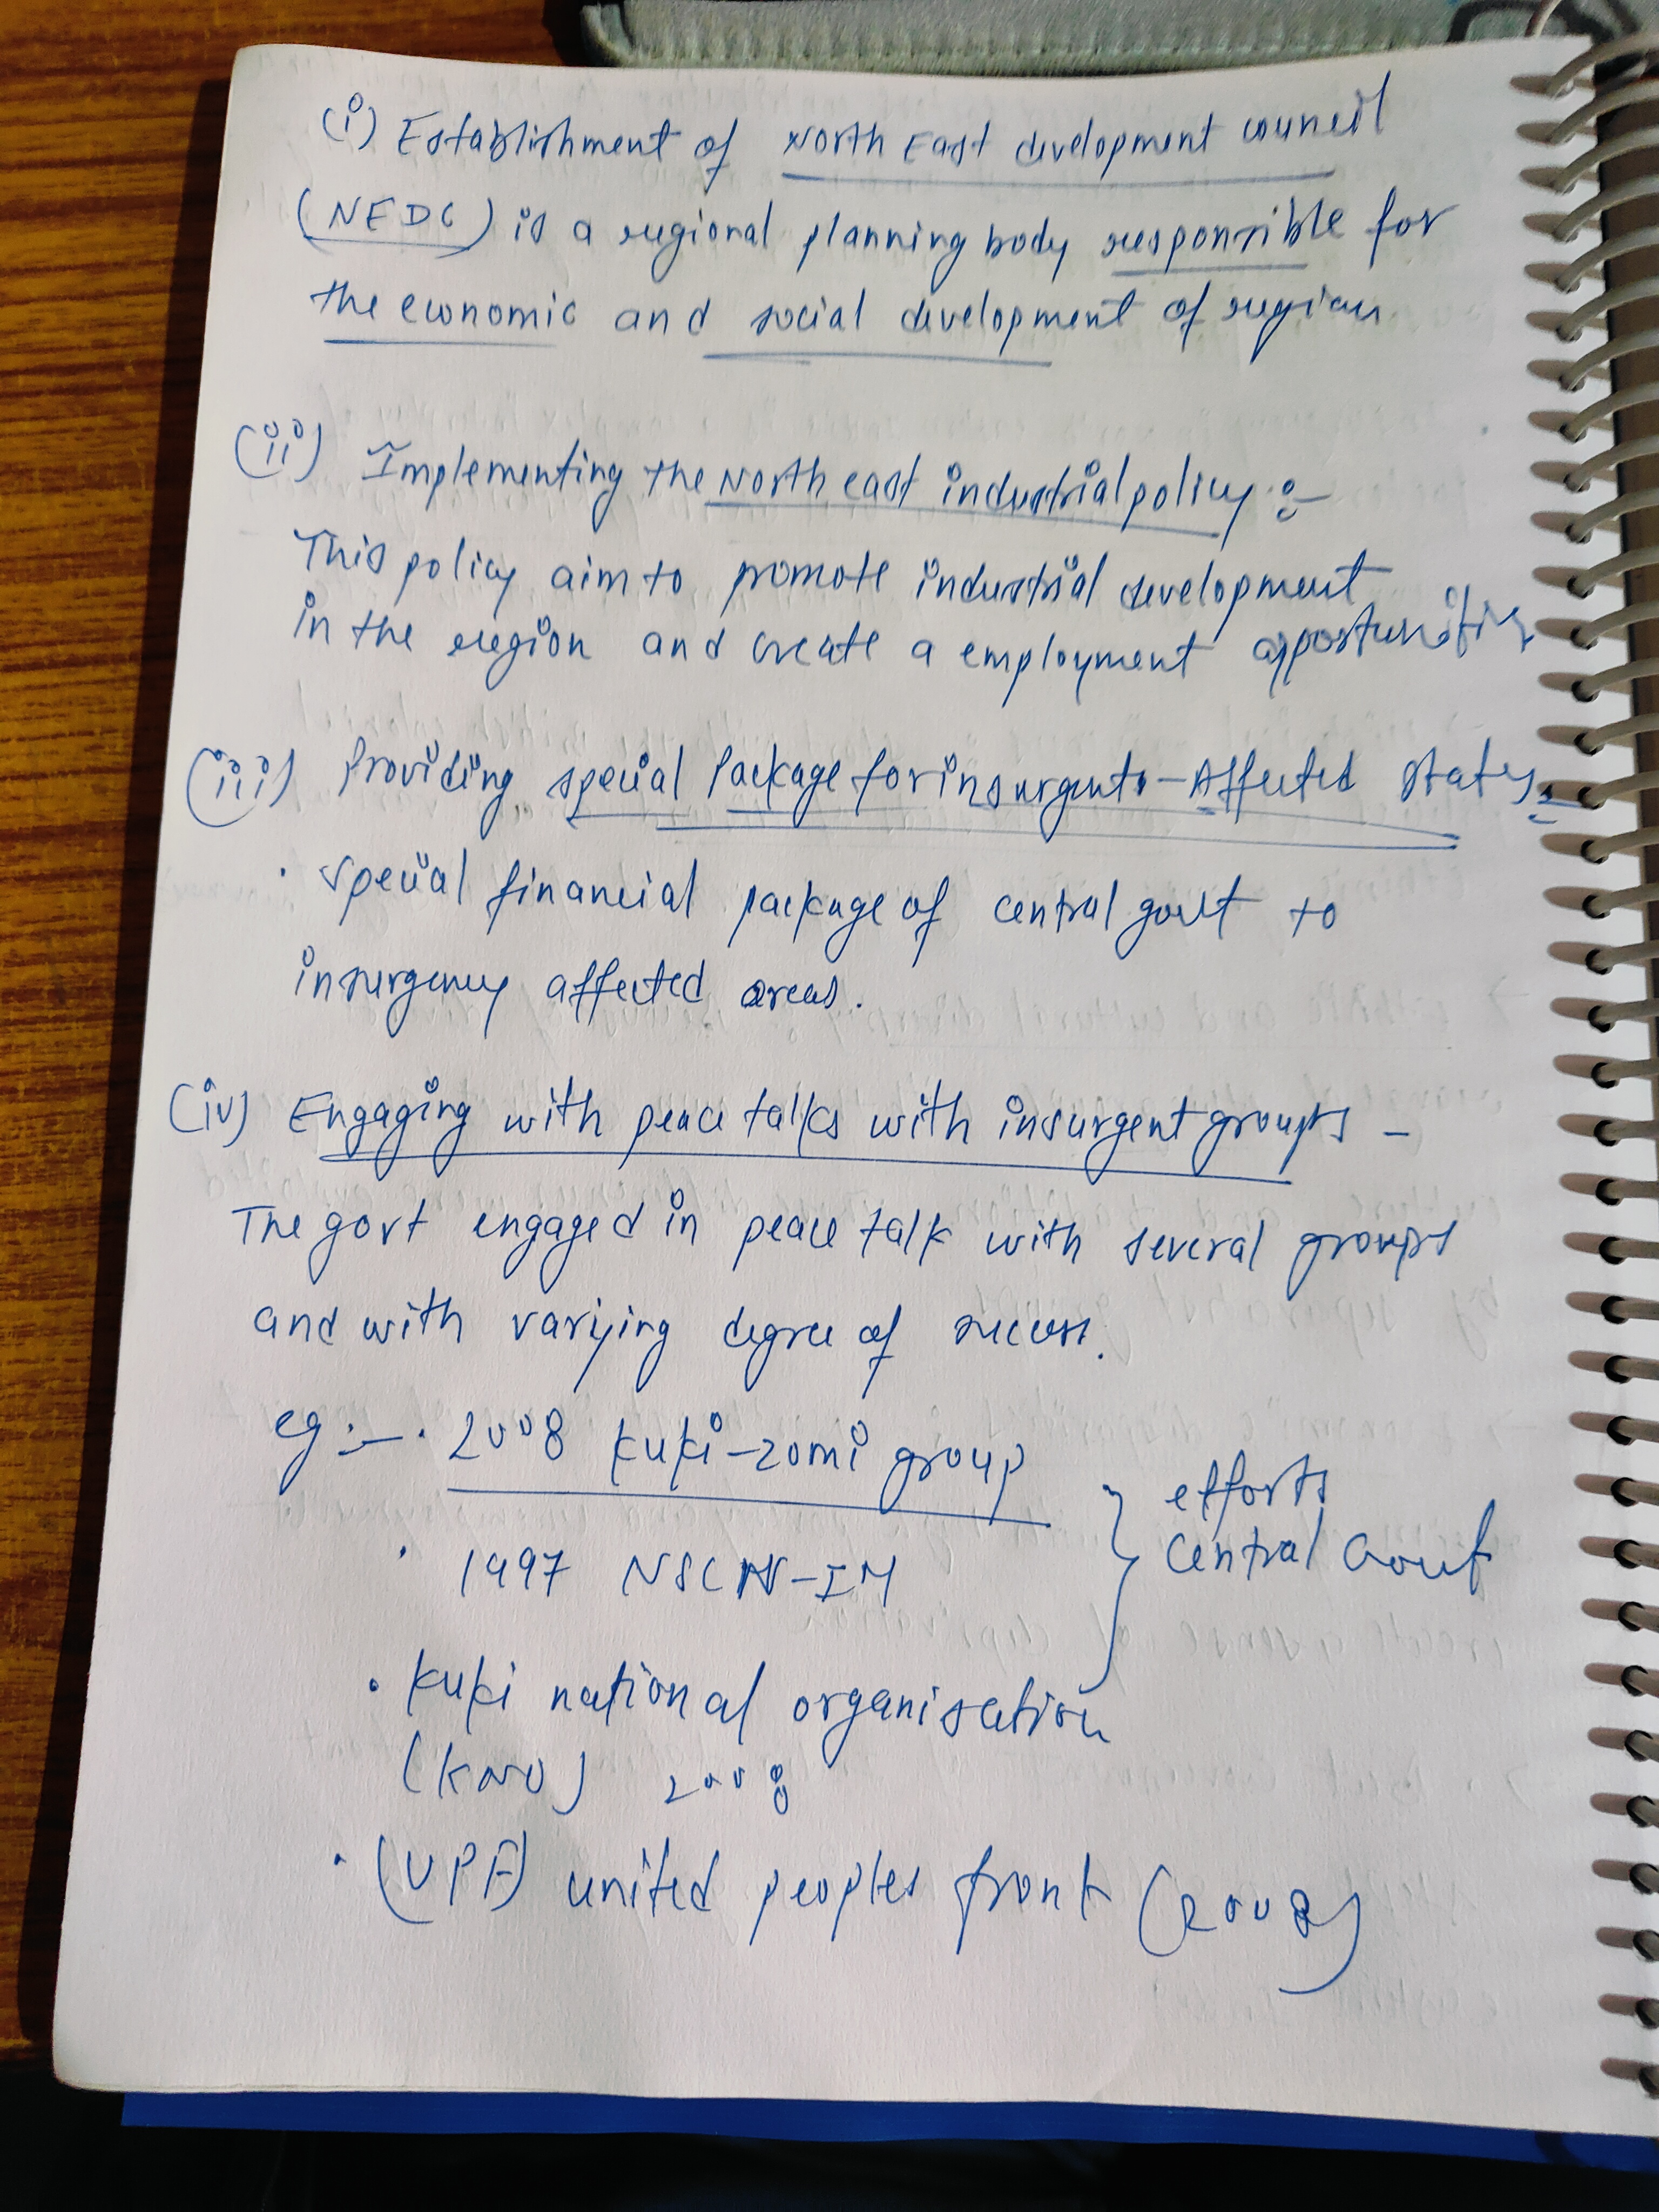 (i) Establishment of North East development council
(NEDC) is a regional planning body responsible for
the economic and social development of region
(ii) Implementing the North east industrial policy :-
This policy aim to promote industrial development
in the region and create a employment opportunities
(iii) Providing special Package for insurgent-Affected states :-
· special financial package of central govt to
insurgency affected areas.
(iv) Engaging with peace talks with insurgent groups -
The govt engaged in peace talk with several groups
and with varying degree of success.
eg :- · 2008 kuki-zomi group
· 1997 NSCN-IM
} efforts
Central Govt
· kuki national organisation
(KNO) 2008
· (UPF) united peoples front (2008)